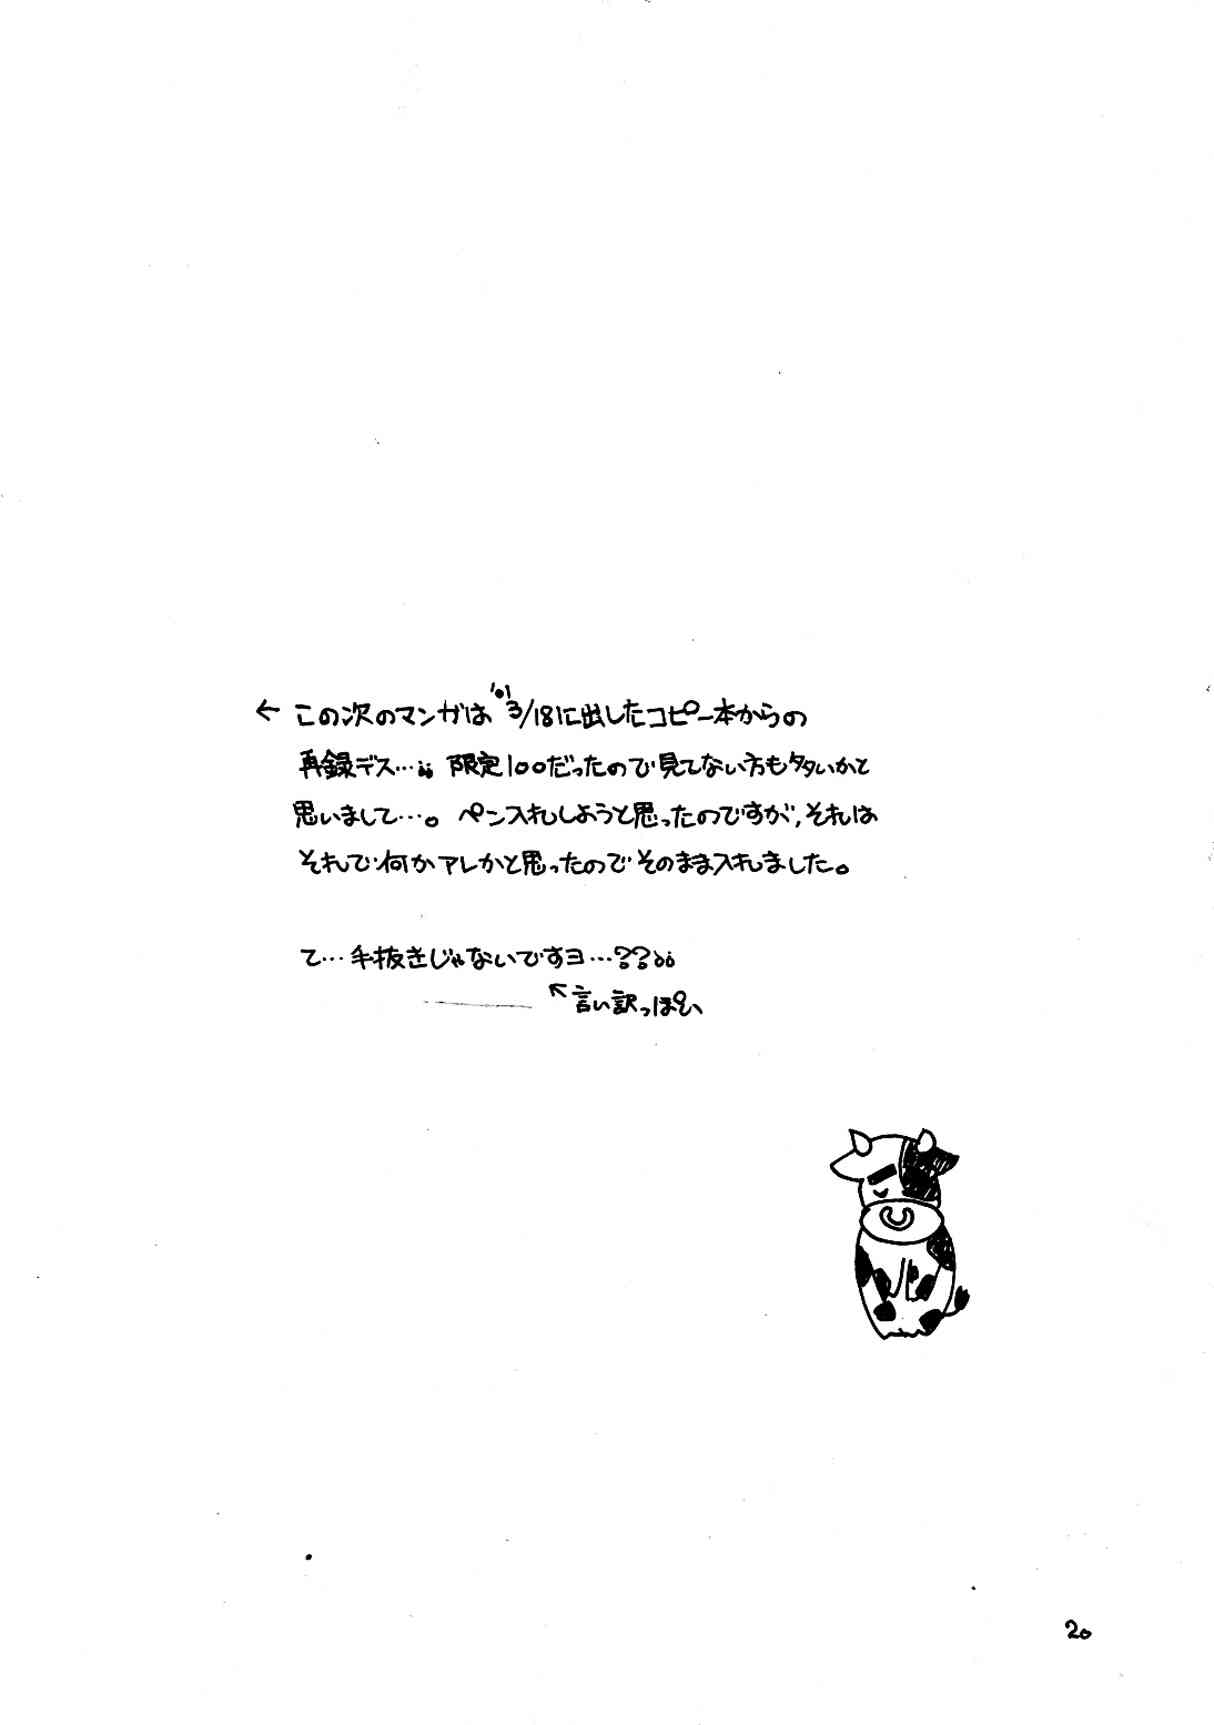 ← この次のマンガは '01 3/18に出したコピー本からの
再録デス…;; 限定100だったので見てない方も多いかと
思いまして…。 ペン入れしようと思ったのですが、それは
それで何かアレかと思ったのでそのまま入れました。
て…手抜きじゃないですヨ…??;;
↖言い訳っぽい
20